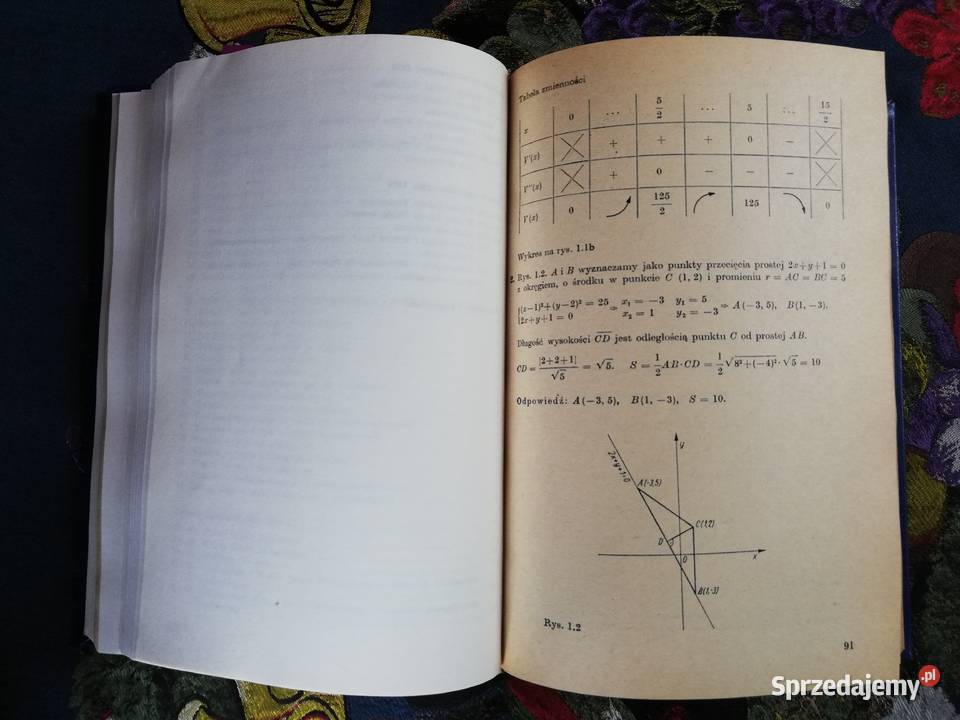 Tabela zmienności
x 0 ... 5/2 ... 5 ... 15/2
V'(x) + + + 0 −
V''(x) + 0 − − −
V(x) 0 125/2 125 0
Wykres na rys. 1.1b
2. Rys. 1.2. A i B wyznaczamy jako punkty przecięcia prostej 2x+y+1 = 0
z okręgiem, o środku w punkcie C (1, 2) i promieniu r = AC = BC = 5
{(x−1)²+(y−2)² = 25 ⇒ x₁ = −3 y₁ = 5 ⇒ A(−3, 5), B(1, −3).
{2x+y+1 = 0 x₂ = 1 y₂ = −3
Długość wysokości CD jest odległością punktu C od prostej AB.
CD = |2+2+1|/√5 = √5. S = 1/2 AB·CD = 1/2 √8²+(−4)² · √5 = 10
Odpowiedź: A(−3, 5), B(1, −3), S = 10.
y
2x+y+1=0
A(-3,5)
C(1,2)
D
0
x
B(1,-3)
Rys. 1.2
91
Sprzedajemy.pl